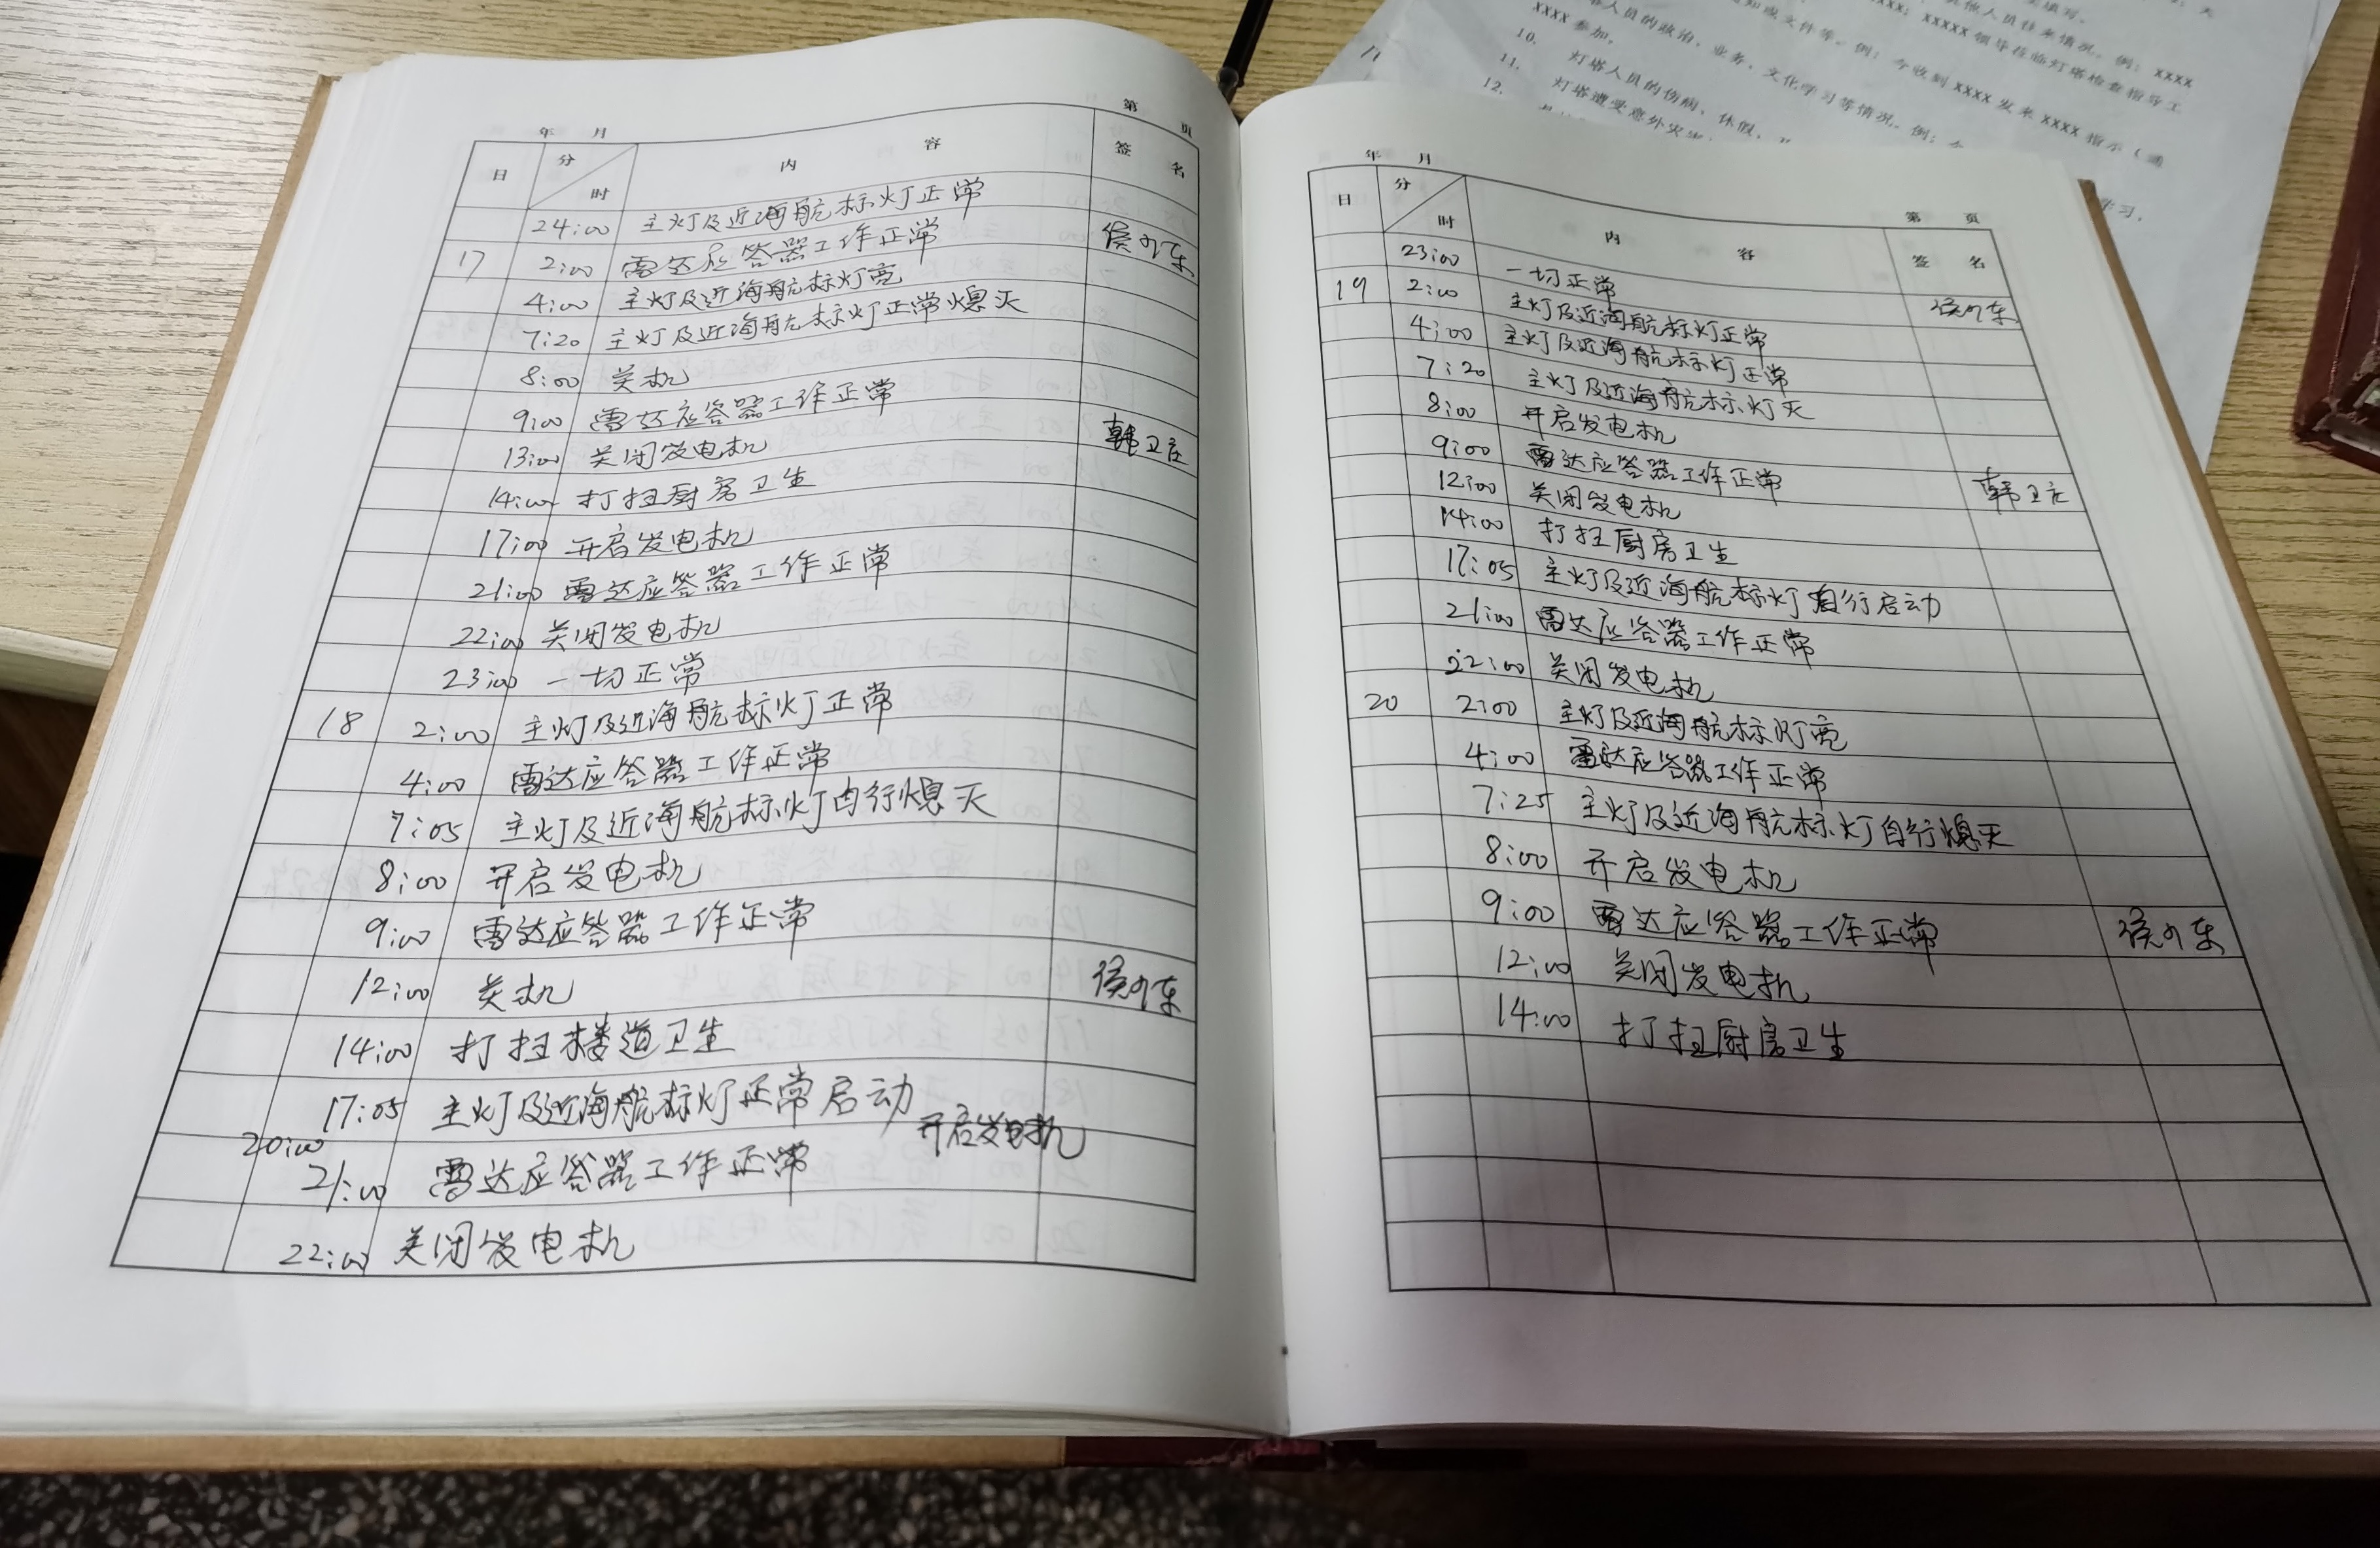 年 月
第 页
日 分 时 内 容 签 名
24:00 主灯及近海航标灯正常
17 2:00 雷达应答器工作正常
4:00 主灯及近海航标灯亮
7:20 主灯及近海航标灯正常熄灭
8:00 关机
9:00 雷达应答器工作正常
13:00 关闭发电机 韩卫庄
14:00 打扫厨房卫生
17:00 开启发电机
21:00 雷达应答器工作正常
22:00 关闭发电机
23:00 一切正常
18 2:00 主灯及近海航标灯正常
4:00 雷达应答器工作正常
7:05 主灯及近海航标灯自行熄灭
8:00 开启发电机
9:00 雷达应答器工作正常
12:00 关机
14:00 打扫楼道卫生
17:05 主灯及近海航标灯正常启动
20:00 开启发电机
21:00 雷达应答器工作正常
22:00 关闭发电机
年 月
第 页
日 分 时 内 容 签 名
23:00 一切正常
19 2:00 主灯及近海航标灯正常
4:00 主灯及近海航标灯正常
7:20 主灯及近海航标灯灭
8:00 开启发电机
9:00 雷达应答器工作正常 韩卫庄
12:00 关闭发电机
14:00 打扫厨房卫生
17:05 主灯及近海航标灯自行启动
21:00 雷达应答器工作正常
22:00 关闭发电机
20 2:00 主灯及近海航标灯亮
4:00 雷达应答器工作正常
7:25 主灯及近海航标灯自行熄灭
8:00 开启发电机
9:00 雷达应答器工作正常
12:00 关闭发电机
14:00 打扫厨房卫生
其他人员往来情况。例：XXXX
XXXX；XXXXX 领导莅临灯塔检查指导工
知或文件等。例：今收到 XXXX 发来 XXXX 指示（通
人员的政治、业务、文化学习等情况。例：今
XXXX 参加。
10. 灯塔人员的伤病、休假、
11. 灯塔遭受意外灾害
12.
学习，